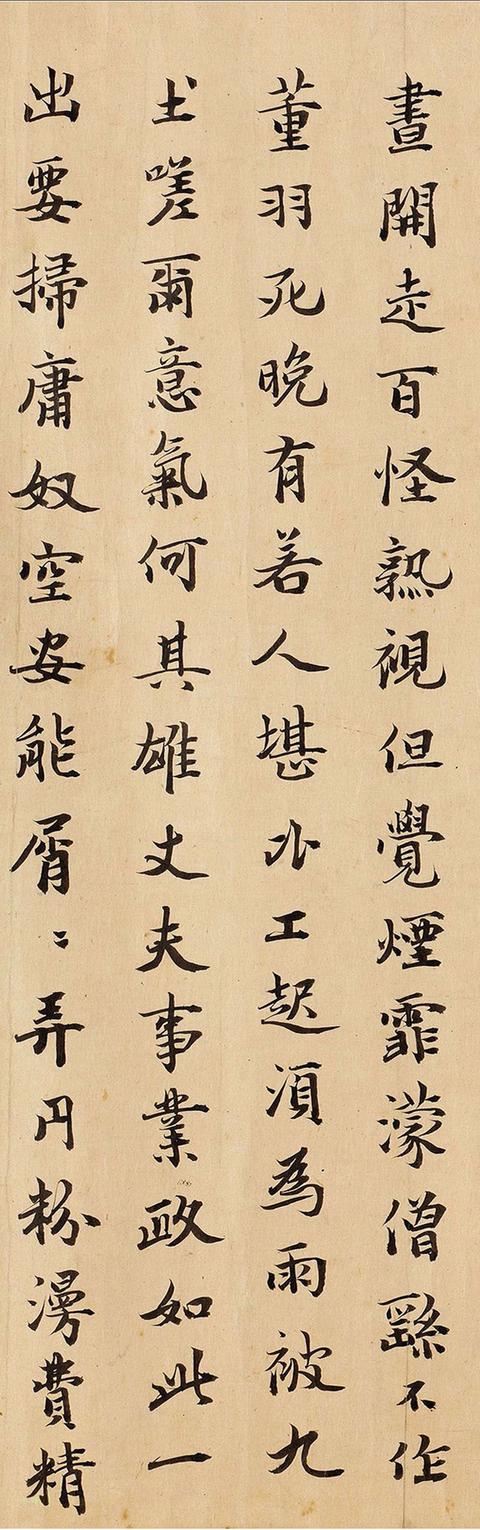 晝開走百怪熟視但覺煙霏濛僧繇不作
董羽死晚有若人堪比工起須為雨被九
土嗟爾意氣何其雄丈夫事業政如此一
出要掃庸奴空安能屑〻弄丹粉漫費精